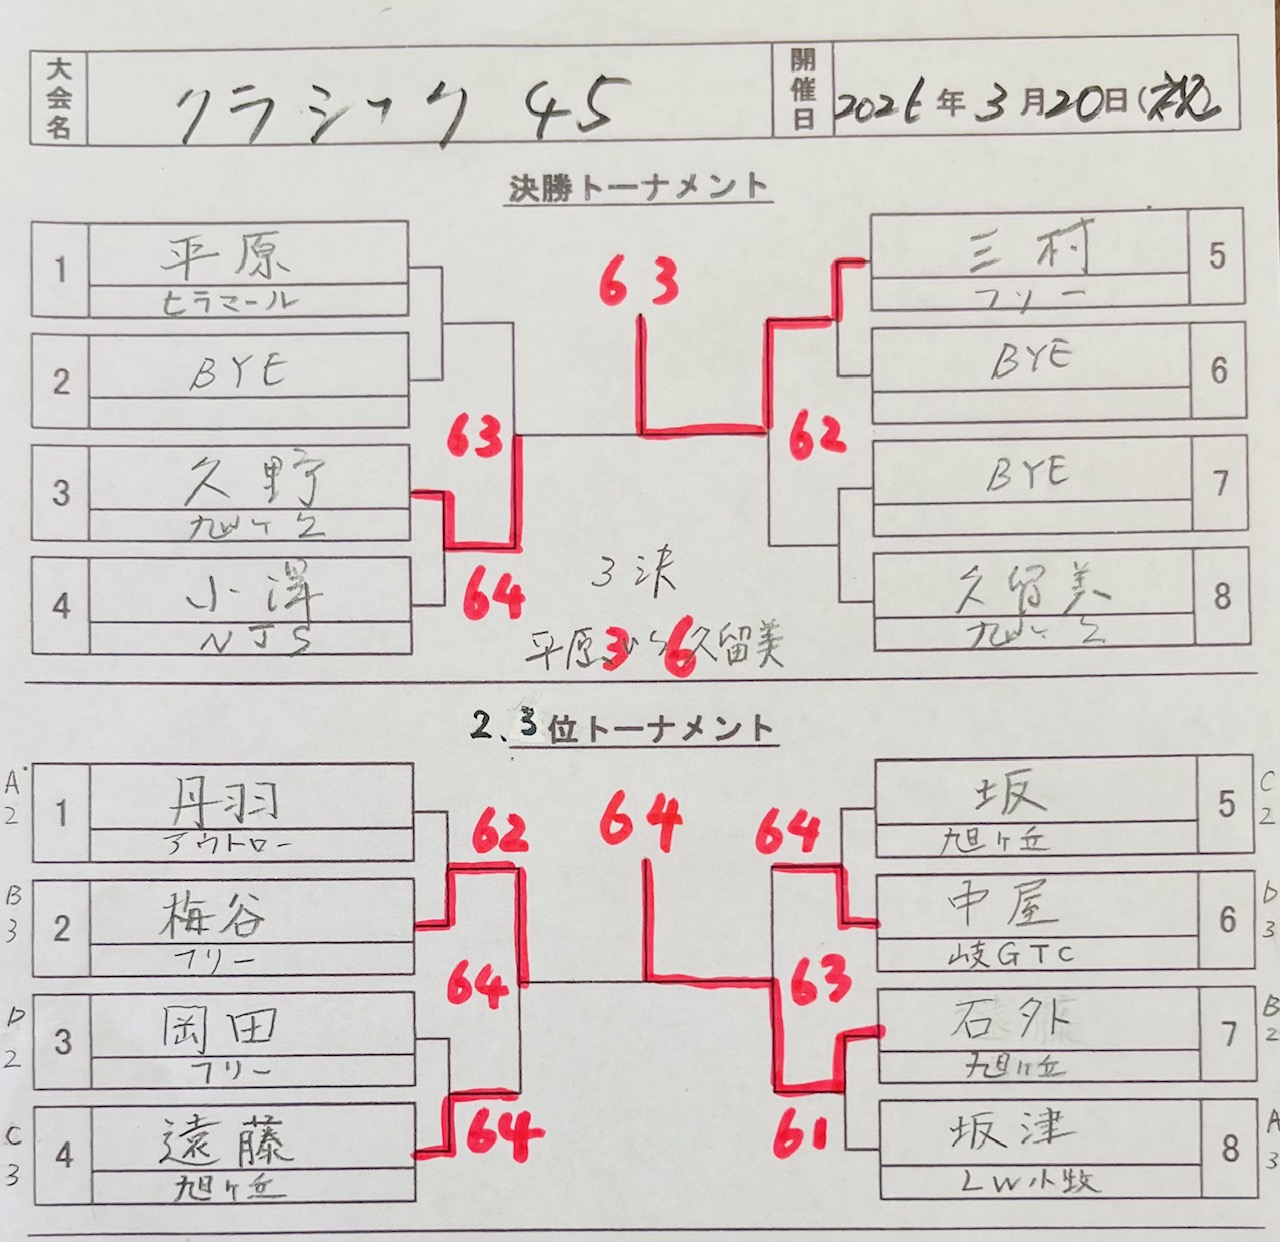 大会名 クラシック 45 開催日 2026年3月20日(祝)
決勝トーナメント
1 平原
ヒラマール
2 BYE
63
3 久野
旭ヶ丘
64
4 小澤
NJS
63
三村 5
フリー
BYE 6
62
BYE 7
久留美 8
旭ヶ丘
3決
平原 3 6 久留美
2、3位トーナメント
A2 1 丹羽
アウトロー
62
B3 2 梅谷
フリー
64
D2 3 岡田
フリー
64
C3 4 遠藤
旭ヶ丘
64
坂 5 C2
旭ヶ丘
64
中屋 6 D3
岐GTC
63
石外 7 B2
旭ヶ丘
61
坂津 8 A3
LW小牧